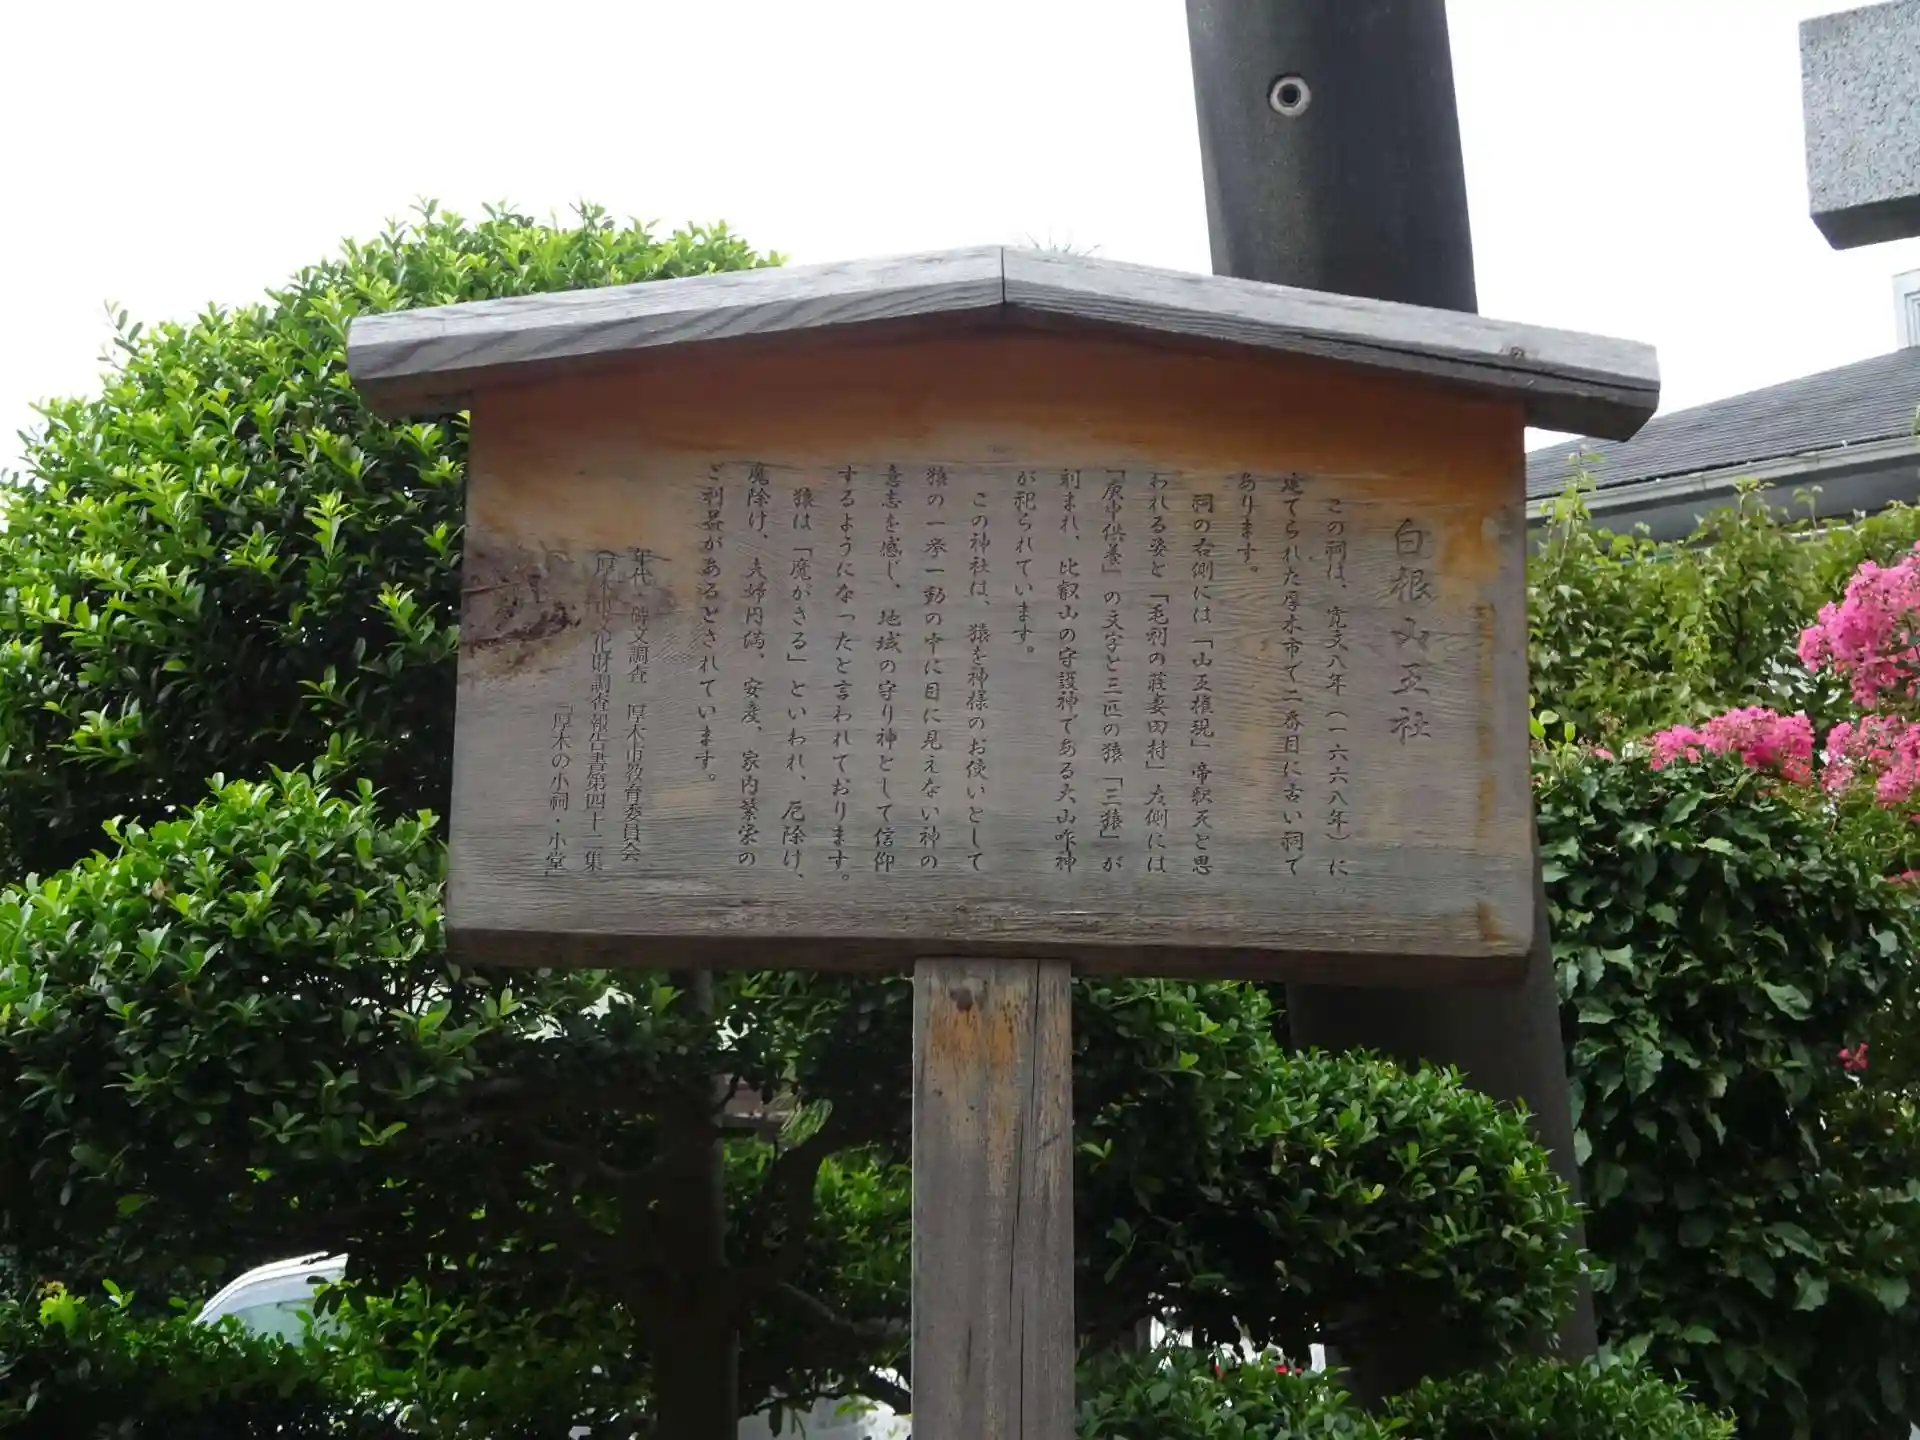 白根山王社
この祠は、寛文八年（一六六八年）に
建てられた厚木市で二番目に古い祠で
あります。
祠の右側には「山王権現」帝釈天と思
われる姿と「毛利の荘妻田村」左側には
「庚申供養」の文字と三匹の猿「三猿」が
刻まれ、比叡山の守護神である大山咋神
が祀られています。
この神社は、猿を神様のお使いとして
猿の一挙一動の中に目に見えない神の
意志を感じ、地域の守り神として信仰
するようになったと言われております。
猿は「魔がさる」といわれ、厄除け、
魔除け、夫婦円満、安産、家内繁栄の
ご利益があるとされています。
年代・碑文調査　厚木市教育委員会
（厚木市文化財調査報告書第四十二集
「厚木の小祠・小堂」